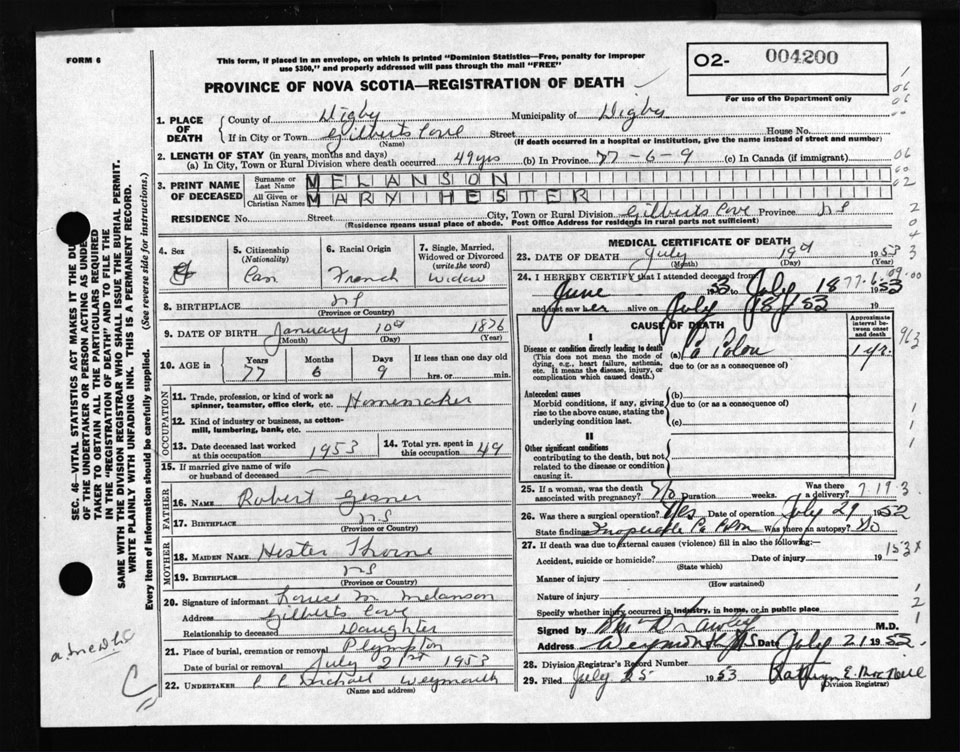 FORM 6
This form, if placed in an envelope, on which is printed "Dominion Statistics—Free, penalty for improper
use $300," and properly addressed will pass through the mail "FREE"
02- 004200
For use of the Department only
PROVINCE OF NOVA SCOTIA—REGISTRATION OF DEATH
1. PLACE OF DEATH
County of Digby Municipality of Digby
If in City or Town Gilberts Cove Street House No.
(Name) (If death occurred in a hospital or institution, give the name instead of street and number)
2. LENGTH OF STAY (in years, months and days)
(a) In City, Town or Rural Division where death occurred 49 yrs (b) In Province 77-6-9 (c) In Canada (if immigrant)
3. PRINT NAME OF DECEASED
Surname or Last Name MELANSON
All Given or Christian Names MARY HESTER
RESIDENCE No. Street City, Town or Rural Division Gilberts Cove Province NS
(Residence means usual place of abode. Post Office Address for residents in rural parts not sufficient)
4. Sex
5. Citizenship (Nationality) Can
6. Racial Origin French
7. Single, Married, Widowed or Divorced (write the word) Widow
8. BIRTHPLACE NS
(Province or Country)
9. DATE OF BIRTH January 10th 1876
(Month) (Day) (Year)
10. AGE in Years Months Days If less than one day old
77 6 9 hrs. or min.
OCCUPATION
11. Trade, profession, or kind of work as spinner, teamster, office clerk, etc. Homemaker
12. Kind of industry or business, as cotton-mill, lumbering, bank, etc.
13. Date deceased last worked at this occupation 1953
14. Total yrs. spent in this occupation 49
15. If married give name of wife or husband of deceased —
FATHER
16. NAME Robert Gesner
17. BIRTHPLACE NS
(Province or Country)
MOTHER
18. MAIDEN NAME Hester Thorne
19. BIRTHPLACE NS
(Province or Country)
20. Signature of informant M Melanson
Address Gilberts Cove
Relationship to deceased Daughter
21. Place of burial, cremation or removal Plympton
Date of burial or removal July 21st 1953
22. UNDERTAKER Weymouth
(Name and address)
MEDICAL CERTIFICATE OF DEATH
23. DATE OF DEATH July 19th 1953
(Month) (Day) (Year)
24. I HEREBY CERTIFY that I attended deceased from
June 53 to July 18 1953
and last saw her alive on July 18/53 19
CAUSE OF DEATH
Approximate interval between onset and death
I
Disease or condition directly leading to death (a) Ca Colon 1 yr.
(This does not mean the mode of dying, e.g., heart failure, asthenia, etc. It means the disease, injury, or complication which caused death.)
due to (or as a consequence of)
Antecedent causes (b)
Morbid conditions, if any, giving rise to the above cause, stating the underlying condition last.
due to (or as a consequence of)
(c)
II
Other significant conditions
contributing to the death, but not related to the disease or condition causing it.
25. If a woman, was the death associated with pregnancy? No Duration weeks. Was there a delivery?
26. Was there a surgical operation? Yes Date of operation July 29 1952
State findings Inoperable Ca Colon Was there an autopsy? No
27. If death was due to external causes (violence) fill in also the following:
Accident, suicide or homicide? Date of injury 19
(State which)
Manner of injury
(How sustained)
Nature of injury
Specify whether injury occurred in industry, in home, or in public place
Signed by M.D.
Address Weymouth NS Date July 21 1953
28. Division Registrar's Record Number
29. Filed July 25 1953
Division Registrar)
SEC. 46—VITAL STATISTICS ACT MAKES IT THE DU
OF THE UNDERTAKER OR PERSON ACTING AS UNDE
TAKER TO OBTAIN ALL THE PARTICULARS REQUIRED
IN THE "REGISTRATION OF DEATH" AND TO FILE THE
SAME WITH THE DIVISION REGISTRAR WHO SHALL ISSUE THE BURIAL PERMIT.
WRITE PLAINLY WITH UNFADING INK. THIS IS A PERMANENT RECORD.
Every item of information should be carefully supplied. (See reverse side for instructions.)